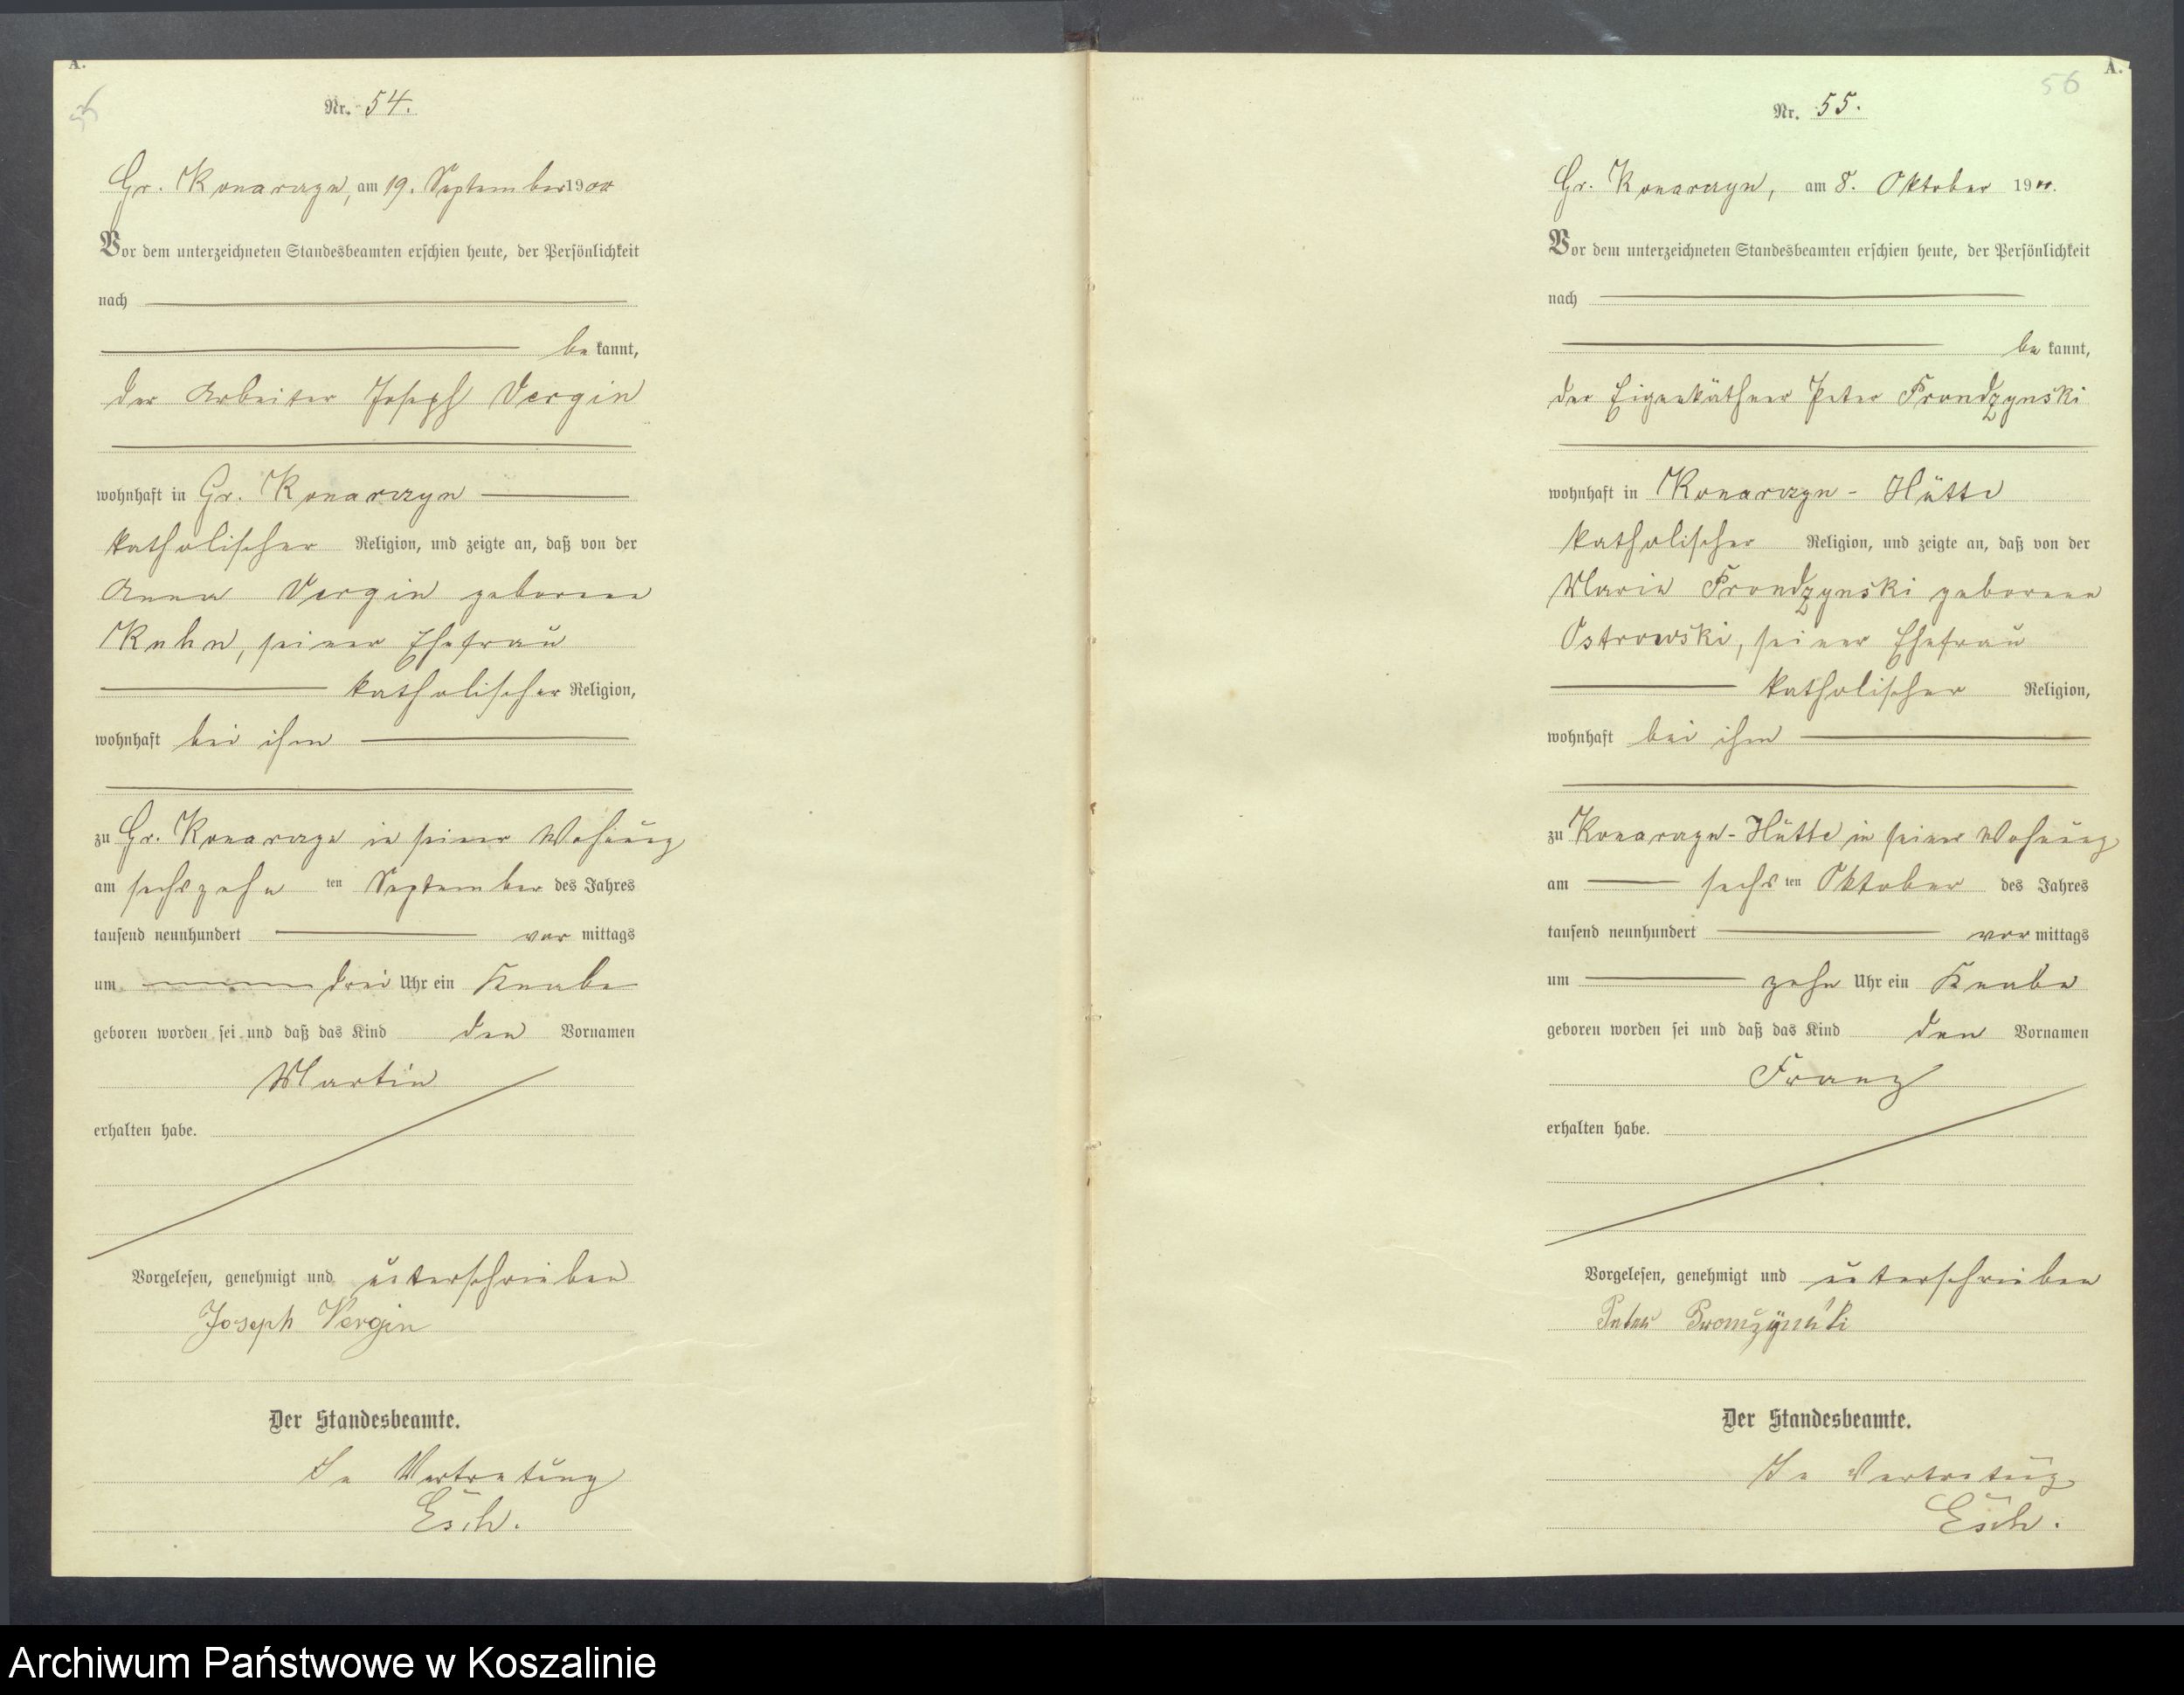 A.
Nr. 54.
Gr. Konarczyn, am 19. September 1900
Vor dem unterzeichneten Standesbeamten erschien heute, der Persönlichkeit
nach
be kannt,
der Arbeiter Joseph Vergin
wohnhaft in Gr. Konarczyn
katholischer Religion, und zeigte an, daß von der
Anna Vergin geborene
Kuhn, seiner Ehefrau
katholischer Religion,
wohnhaft bei ihm
zu Gr. Konarczyn in seiner Wohnung
am sechszehn ten September des Jahres
tausend neunhundert vor mittags
um drei Uhr ein Knabe
geboren worden sei und daß das Kind den Vornamen
Martin
erhalten habe.
Vorgelesen, genehmigt und unterschrieben
Joseph Vergin
Der Standesbeamte.
In Vertretung
Esch.
A.
56
Nr. 55.
Gr. Konarczyn, am 8. Oktober 1900.
Vor dem unterzeichneten Standesbeamten erschien heute, der Persönlichkeit
nach
be kannt,
der Eigenkäthner Peter Prondzynski
wohnhaft in Konarczyn-Hütte
katholischer Religion, und zeigte an, daß von der
Maria Prondzynski geborene
Ostrowski, seiner Ehefrau
katholischer Religion,
wohnhaft bei ihm
zu Konarczyn-Hütte in seiner Wohnung
am sechs ten Oktober des Jahres
tausend neunhundert vor mittags
um zehn Uhr ein Knabe
geboren worden sei und daß das Kind den Vornamen
Franz
erhalten habe.
Vorgelesen, genehmigt und unterschrieben
Peter
Der Standesbeamte.
In Vertretung
Esch.
Archiwum Państwowe w Koszalinie